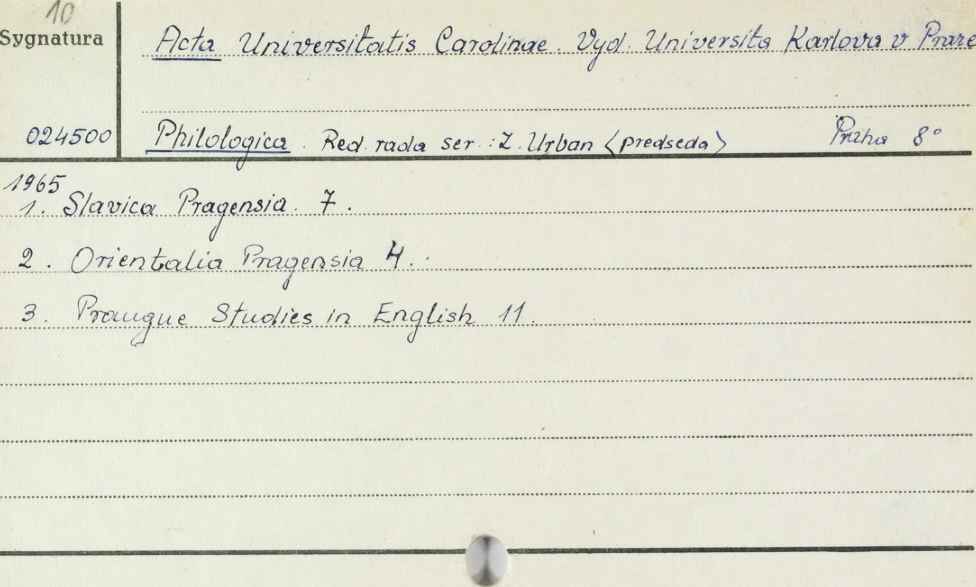 10
Sygnatura
Acta Universitatis Carolinae. Vyd. Universita Karlova v Praze
024500
Philologica. Red. rada ser.: Z. Urban <predseda> Praha 8°
1965
1. Slavica Pragensia. 7.
2. Orientalia Pragensia 4.
3. Praugue Studies in English 11.